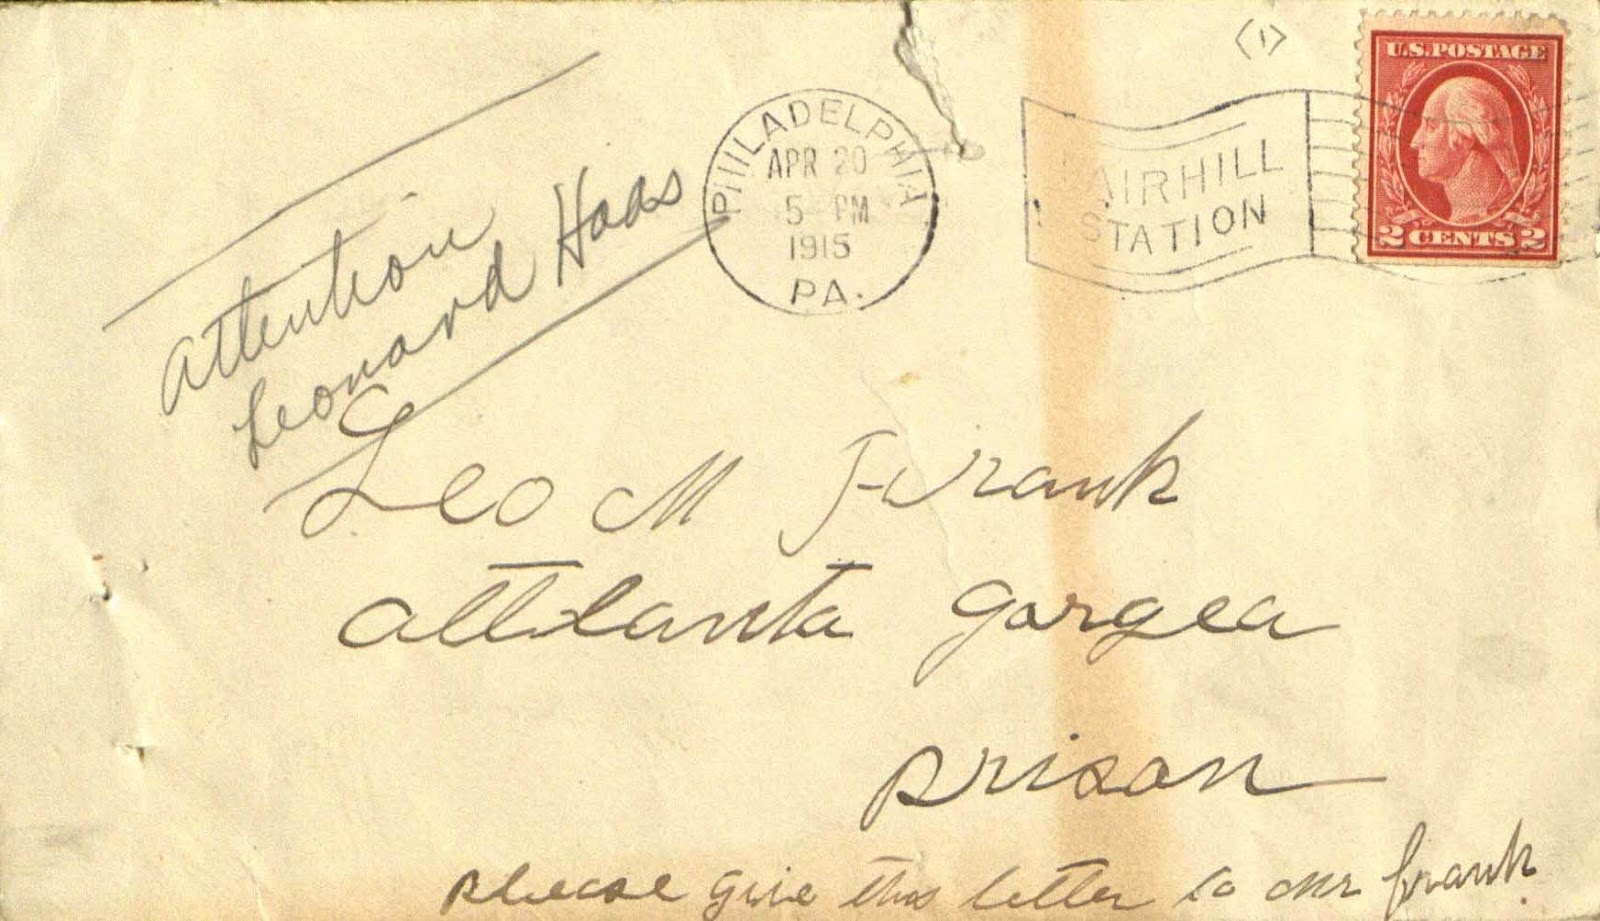 (1)
U.S.POSTAGE
2 CENTS 2
PHILADELPHIA
APR 20
5 PM
1915
PA.
FAIRHILL
STATION
Attention
Leonard Haas
Leo M Frank
Attlanta Gorgea
Prison
please give this letter to Mr Frank.